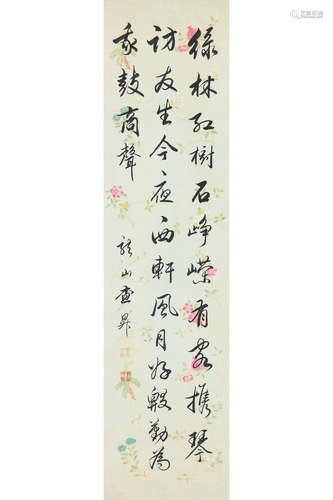 綠林紅樹石崢嶸有客携琴
訪友生今夜西軒風月好殷勤為
我鼓商聲
龍山查昇